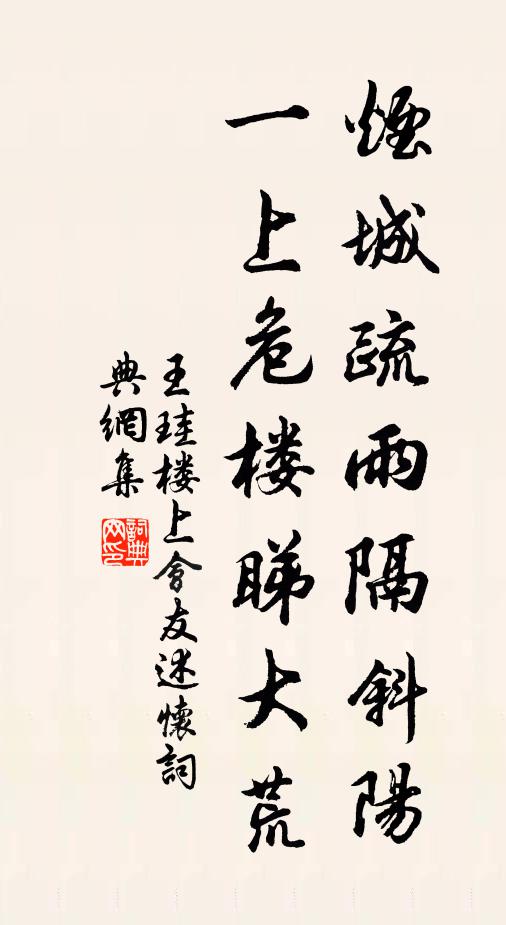 煙城疏雨隔斜陽
一上危楼睇大荒
王珪楼上會友述懷詞
典網集
詞典网印